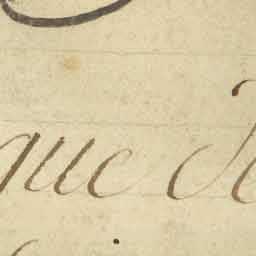 que de